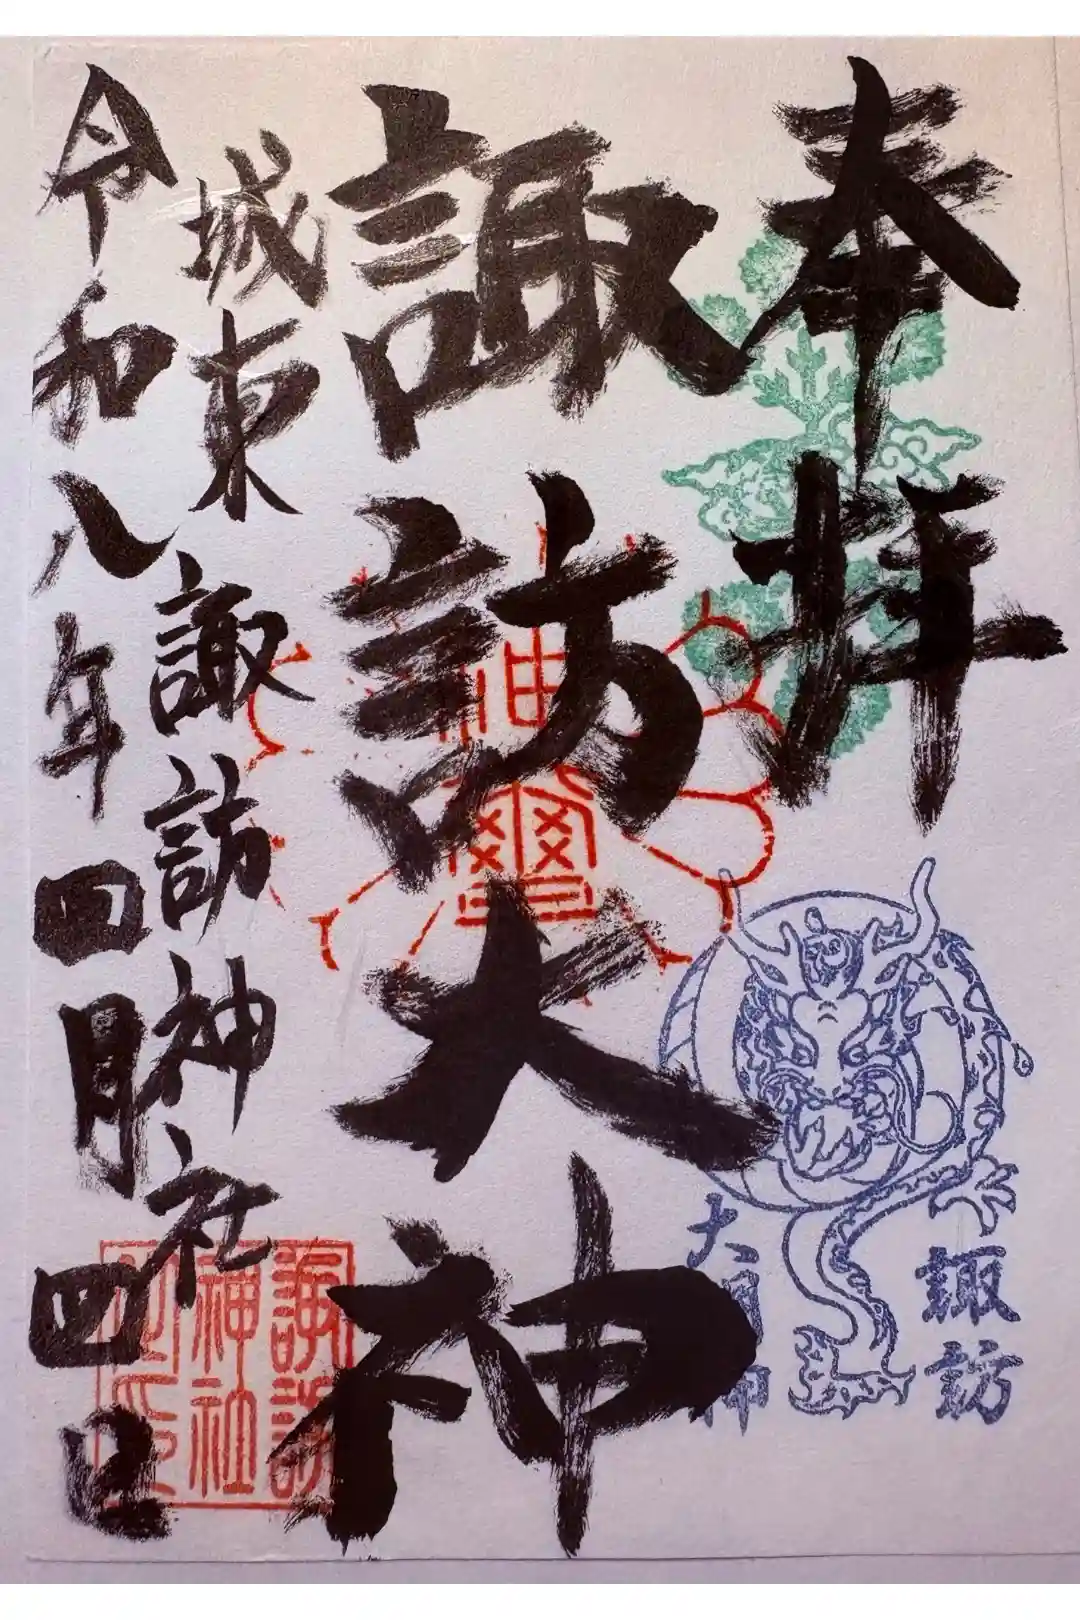 奉拝
諏訪大神
城東諏訪神社
令和八年四月四日
諏訪
大明神
諏訪
神社
神璽